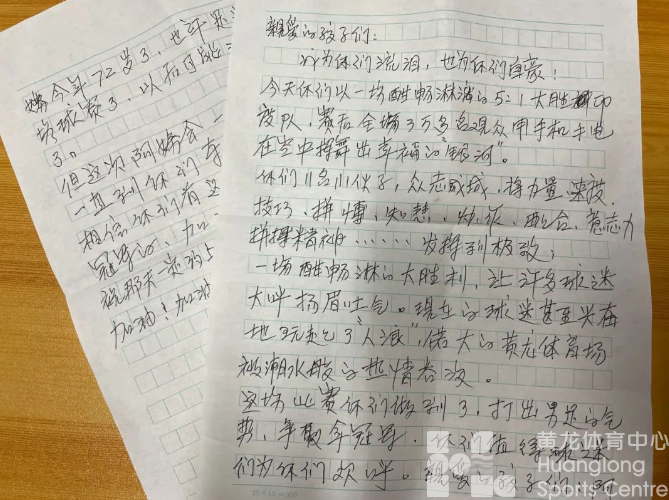 嬌今年72岁了，也许是
场球赛了，以后可能
了。
但这次阿婆会一
一直到你们夺
相信你们有这
冠军的、加
祝那天
加油！加油
親愛的孩子们：
我为你们流泪，也为你们自豪！
今天你们以一场酣畅淋漓的5:1大胜
度队，赛后全场3万多名观众用手机手电
在空中挥舞出幸福的“银河”。
你们11名小伙子，众志成城，将力量、速度、
技巧、拼博、知慧、幼派、配合、意志力
拼搏精神……发挥到极致；
一场酣畅淋的大胜利，让许多球迷
大呼扬眉吐气。现在的球迷甚至兴奋
地玩起了“人浪”，偌大的黄龙体育场
被潮水般的热情吞没。
这场比赛你们做到了，打出男足的气
势，争取拿冠军。你们值得球迷
们为你们欢呼。親愛的孩子们，阿
黄龙体育中心
Huanglong
Sports Centre